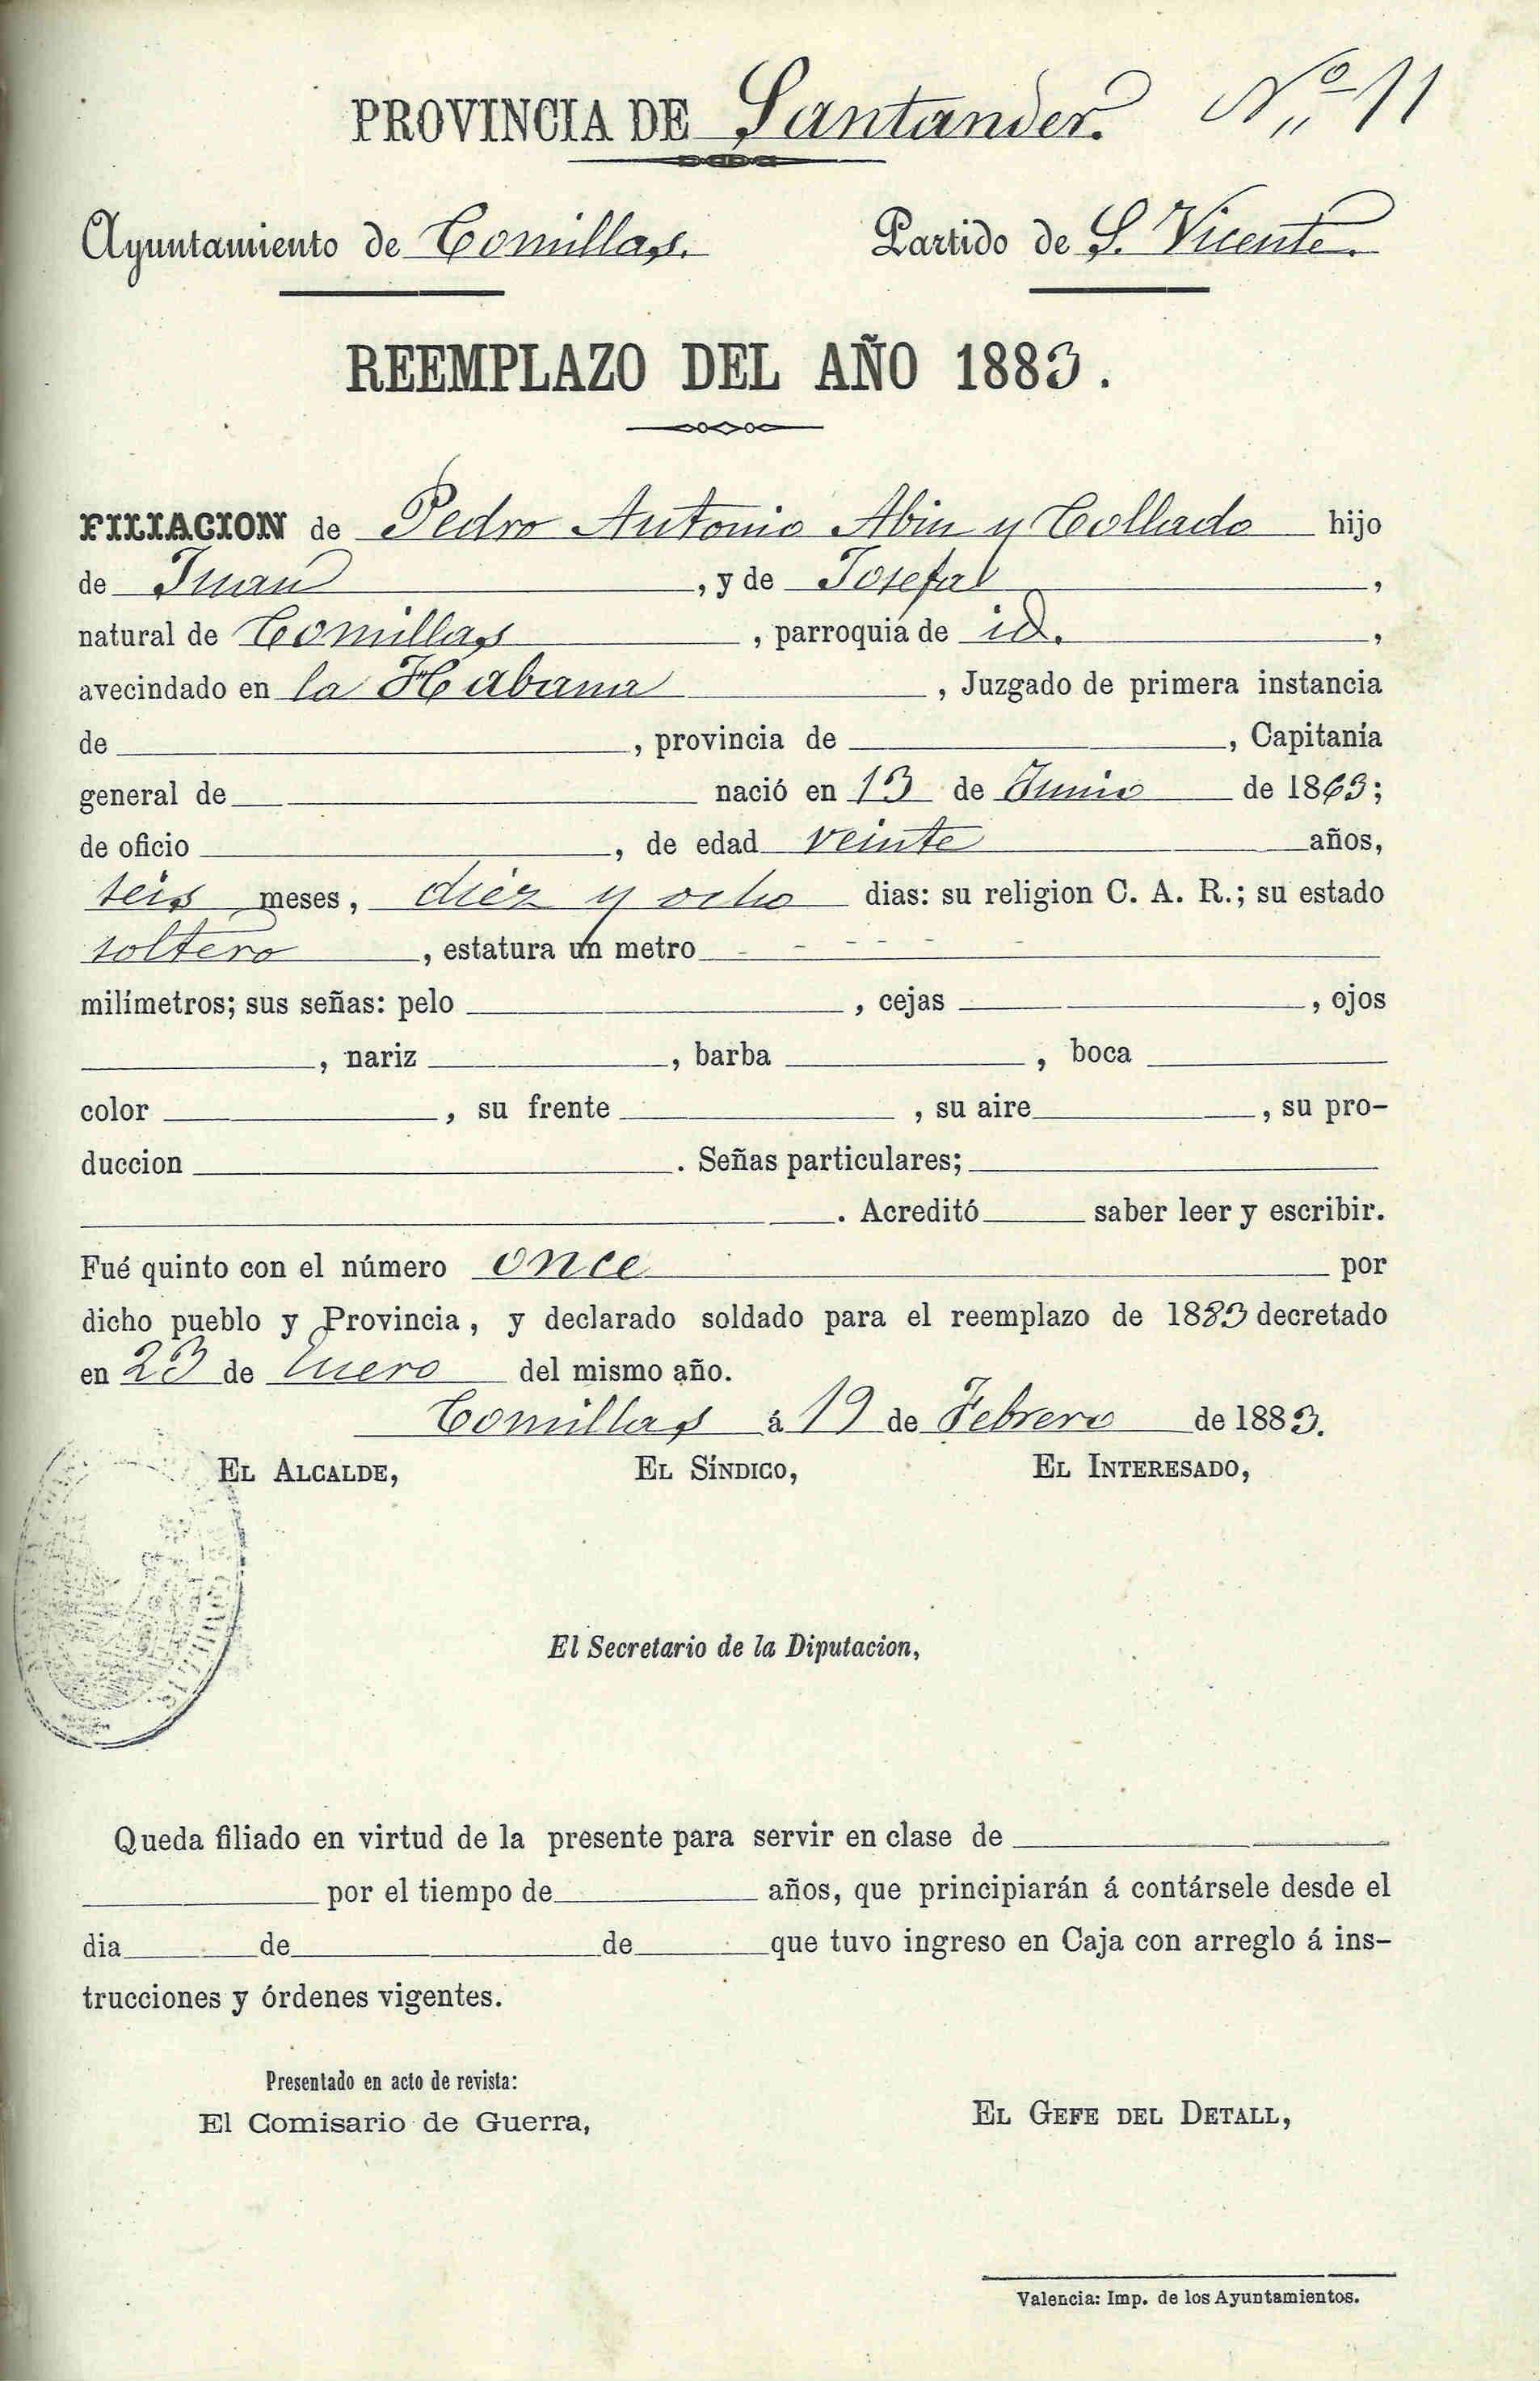 PROVINCIA DE Santander. Nº 11
Ayuntamiento de Comillas. Partido de S. Vicente.
REEMPLAZO DEL AÑO 1883.
FILIACION de Pedro Antonio Abin y Collado hijo
de Juan, y de Josefa,
natural de Comillas, parroquia de id.,
avecindado en la Habana, Juzgado de primera instancia
de , provincia de , Capitanía
general de nació en 13 de Junio de 1863;
de oficio , de edad veinte años,
seis meses, diez y ocho dias: su religion C. A. R.; su estado
soltero, estatura un metro - - - - - -
milímetros; sus señas: pelo , cejas , ojos
, nariz , barba , boca
color , su frente , su aire , su pro-
duccion . Señas particulares;
. Acreditó saber leer y escribir.
Fué quinto con el número once por
dicho pueblo y Provincia, y declarado soldado para el reemplazo de 1883 decretado
en 23 de Enero del mismo año.
Comillas á 19 de Febrero de 1883.
EL ALCALDE, EL SÍNDICO, EL INTERESADO,
El Secretario de la Diputacion,
Queda filiado en virtud de la presente para servir en clase de
por el tiempo de años, que principiarán á contársele desde el
dia de de que tuvo ingreso en Caja con arreglo á ins-
trucciones y órdenes vigentes.
Presentado en acto de revista:
El Comisario de Guerra, EL GEFE DEL DETALL,
Valencia: Imp. de los Ayuntamientos.